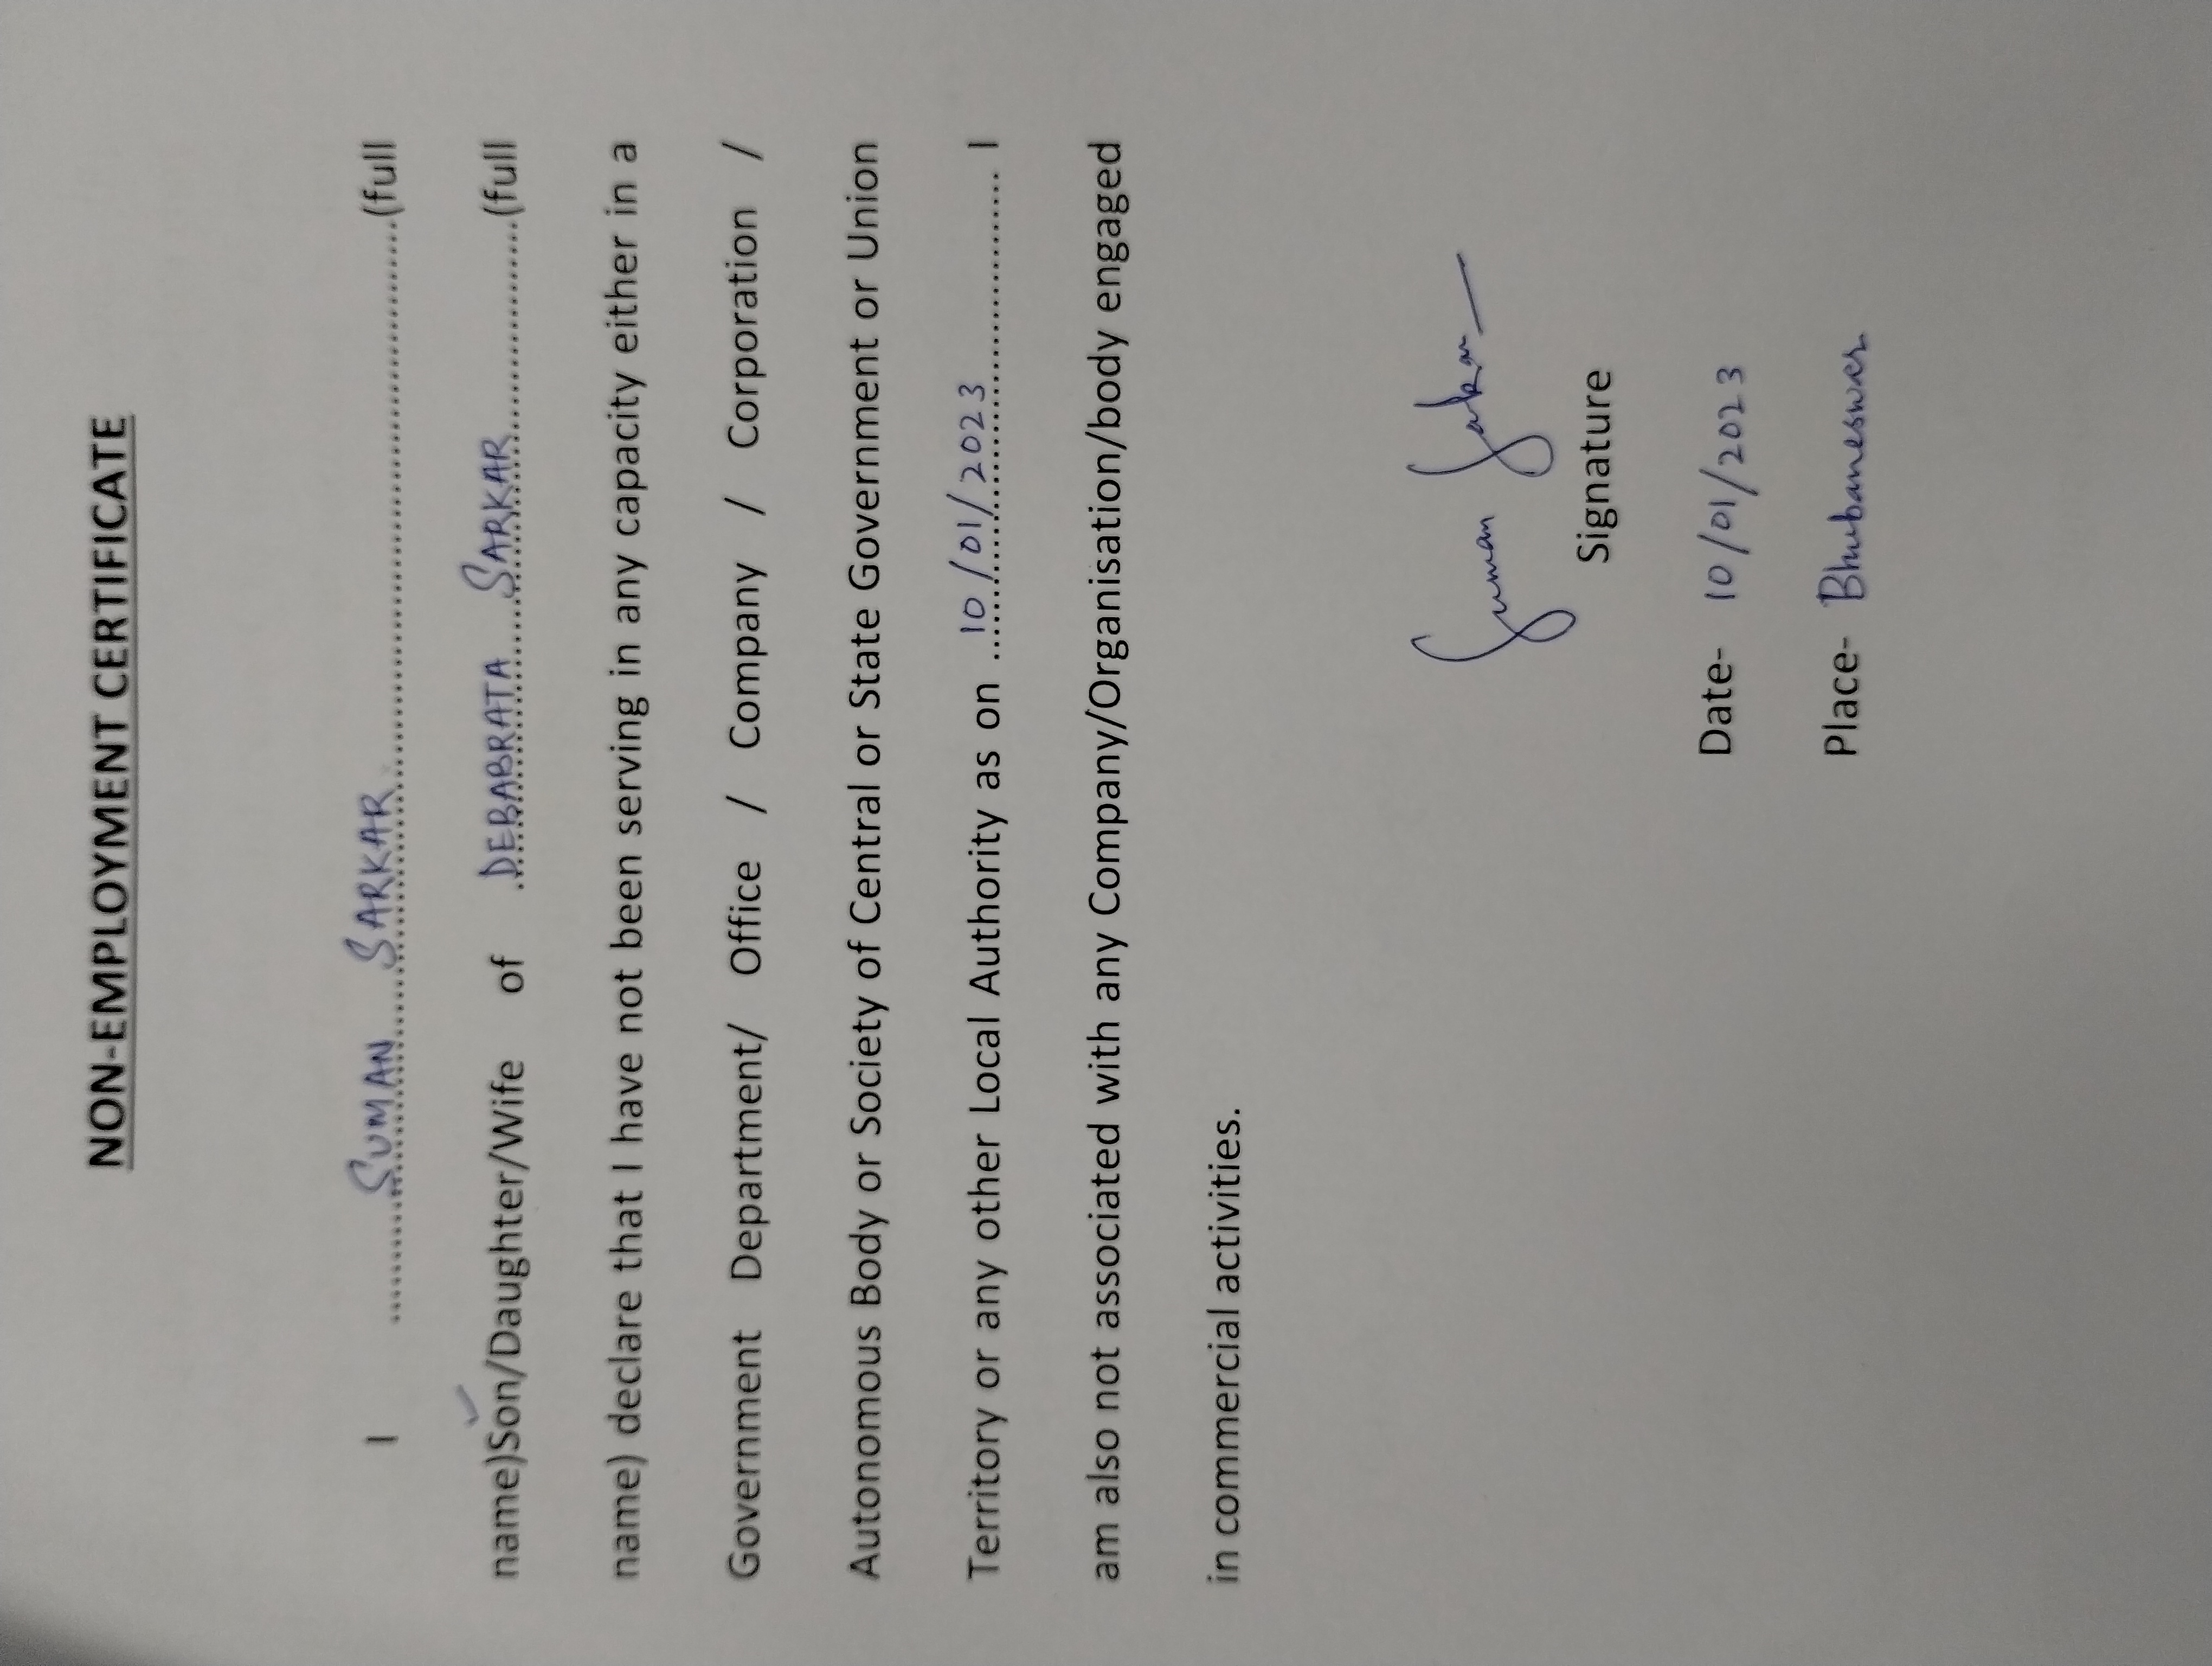 NON-EMPLOYMENT CERTIFICATE
I ..........SUMAN SARKAR..........(full
name)Son/Daughter/Wife of .DEBABRATA SARKAR..........(full
name) declare that I have not been serving in any capacity either in a
Government Department/ Office / Company / Corporation /
Autonomous Body or Society of Central or State Government or Union
Territory or any other Local Authority as on ..10/01/2023.......... I
am also not associated with any Company/Organisation/body engaged
in commercial activities.
Suman Sarkar
Signature
Date- 10/01/2023
Place- Bhubaneswar